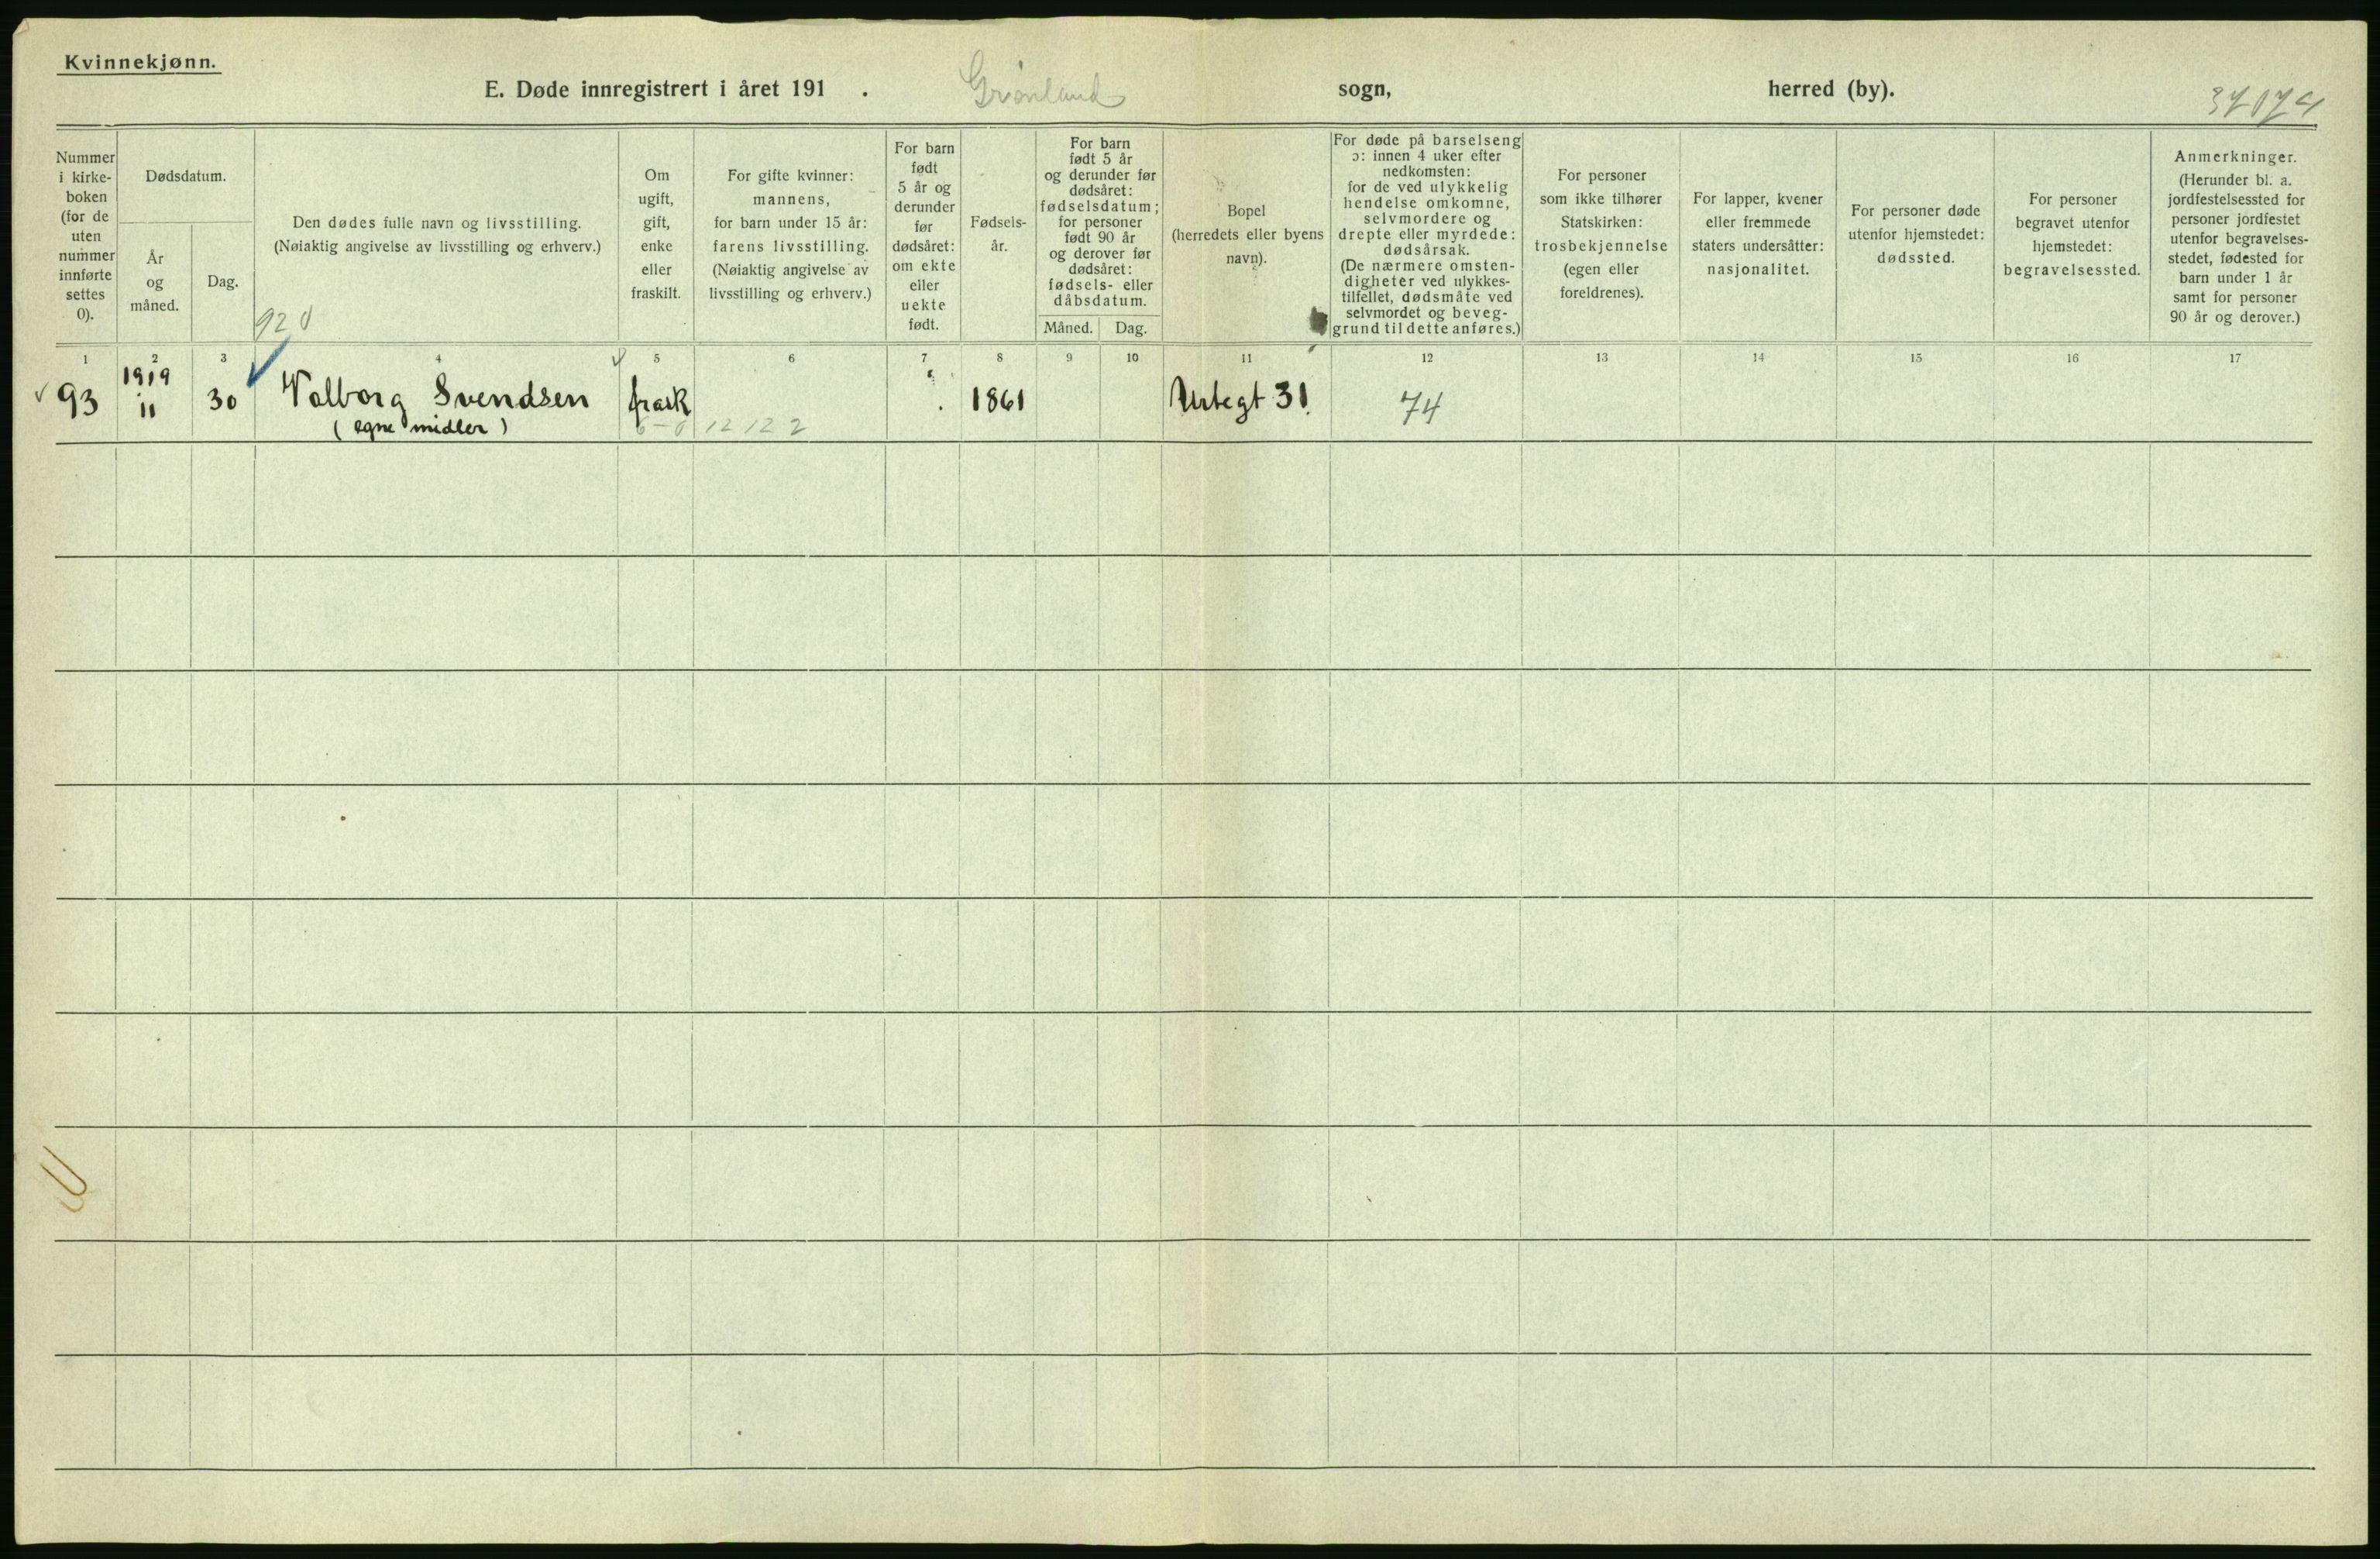 Kvinnekjønn.
E. Døde innregistrert i året 191 . Grønland sogn, herred (by).
Nummer
i kirke-
boken
(for de
uten
nummer
innførte
settes
0).
Dødsdatum.
År
og
måned.
Dag.
Den dødes fulle navn og livsstilling.
(Nøiaktig angivelse av livsstilling og erhverv.)
920
Om
ugift,
gift,
enke
eller
fraskilt.
For gifte kvinner:
mannens,
for barn under 15 år:
farens livsstilling.
(Nøiaktig angivelse av
livsstilling og erhverv.)
For barn
født
5 år og
derunder
før
dødsåret:
om ekte
eller
uekte
født.
Fødsels-
år.
For barn
født 5 år
og derunder før
dødsåret:
fødselsdatum;
for personer
født 90 år
og derover før
dødsåret:
fødsels- eller
dåbsdatum.
Måned. Dag.
Bopel
(herredets eller byens
navn).
For døde på barselseng
ɔ: innen 4 uker efter
nedkomsten:
for de ved ulykkelig
hendelse omkomne,
selvmordere og
drepte eller myrdede:
dødsårsak.
(De nærmere omsten-
digheter ved ulykkes-
tilfellet, dødsmåte ved
selvmordet og beveg-
grund til dette anføres.)
For personer
som ikke tilhører
Statskirken:
trosbekjennelse
(egen eller
foreldrenes).
For lapper, kvener
eller fremmede
staters undersåtter:
nasjonalitet.
For personer døde
utenfor hjemstedet:
dødssted.
For personer
begravet utenfor
hjemstedet:
begravelsessted.
Anmerkninger.
(Herunder bl. a.
jordfestelsessted for
personer jordfestet
utenfor begravelses-
stedet, fødested for
barn under 1 år
samt for personer
90 år og derover.)
1 2 3 4 5 6 7 8 9 10 11 12 13 14 15 16 17
1919
93 11 30 Valborg Svendsen frask 1861 Urtegt 31 74
(egne midler) 12 12 2